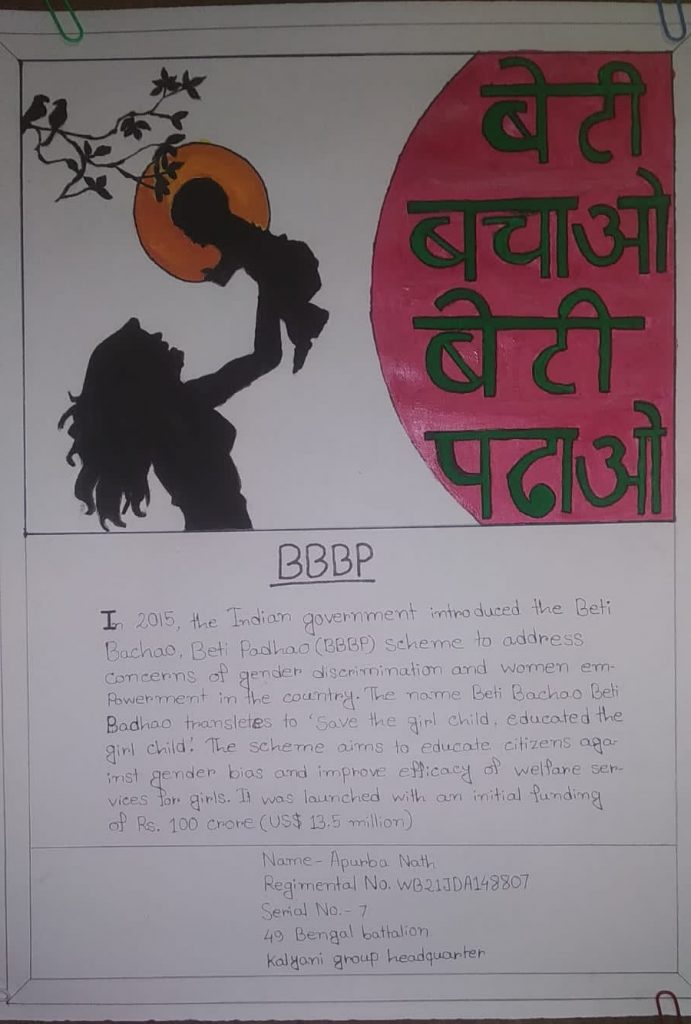 बेटी
बचाओ
बेटी
पढाओ
BBBP
In 2015, the Indian government introduced the Beti
Bachao, Beti Padhao (BBBP) scheme to address
concerns of gender discrimination and women em-
powerment in the country. The name Beti Bachao Beti
Badhao transletes to 'Save the girl child, educated the
girl child'. The scheme aims to educate citizens aga-
inst gender bias and improve efficacy of welfare ser-
vices for girls. It was launched with an initial funding
of Rs. 100 crore (US$ 13.5 million)
Name- Apurba Nath
Regimental No. WB21JDA148807
Serial No.- 7
49 Bengal battalion
Kalyani group headquarter